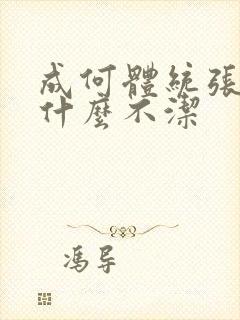 成何體統張
什麼不潔
馮导